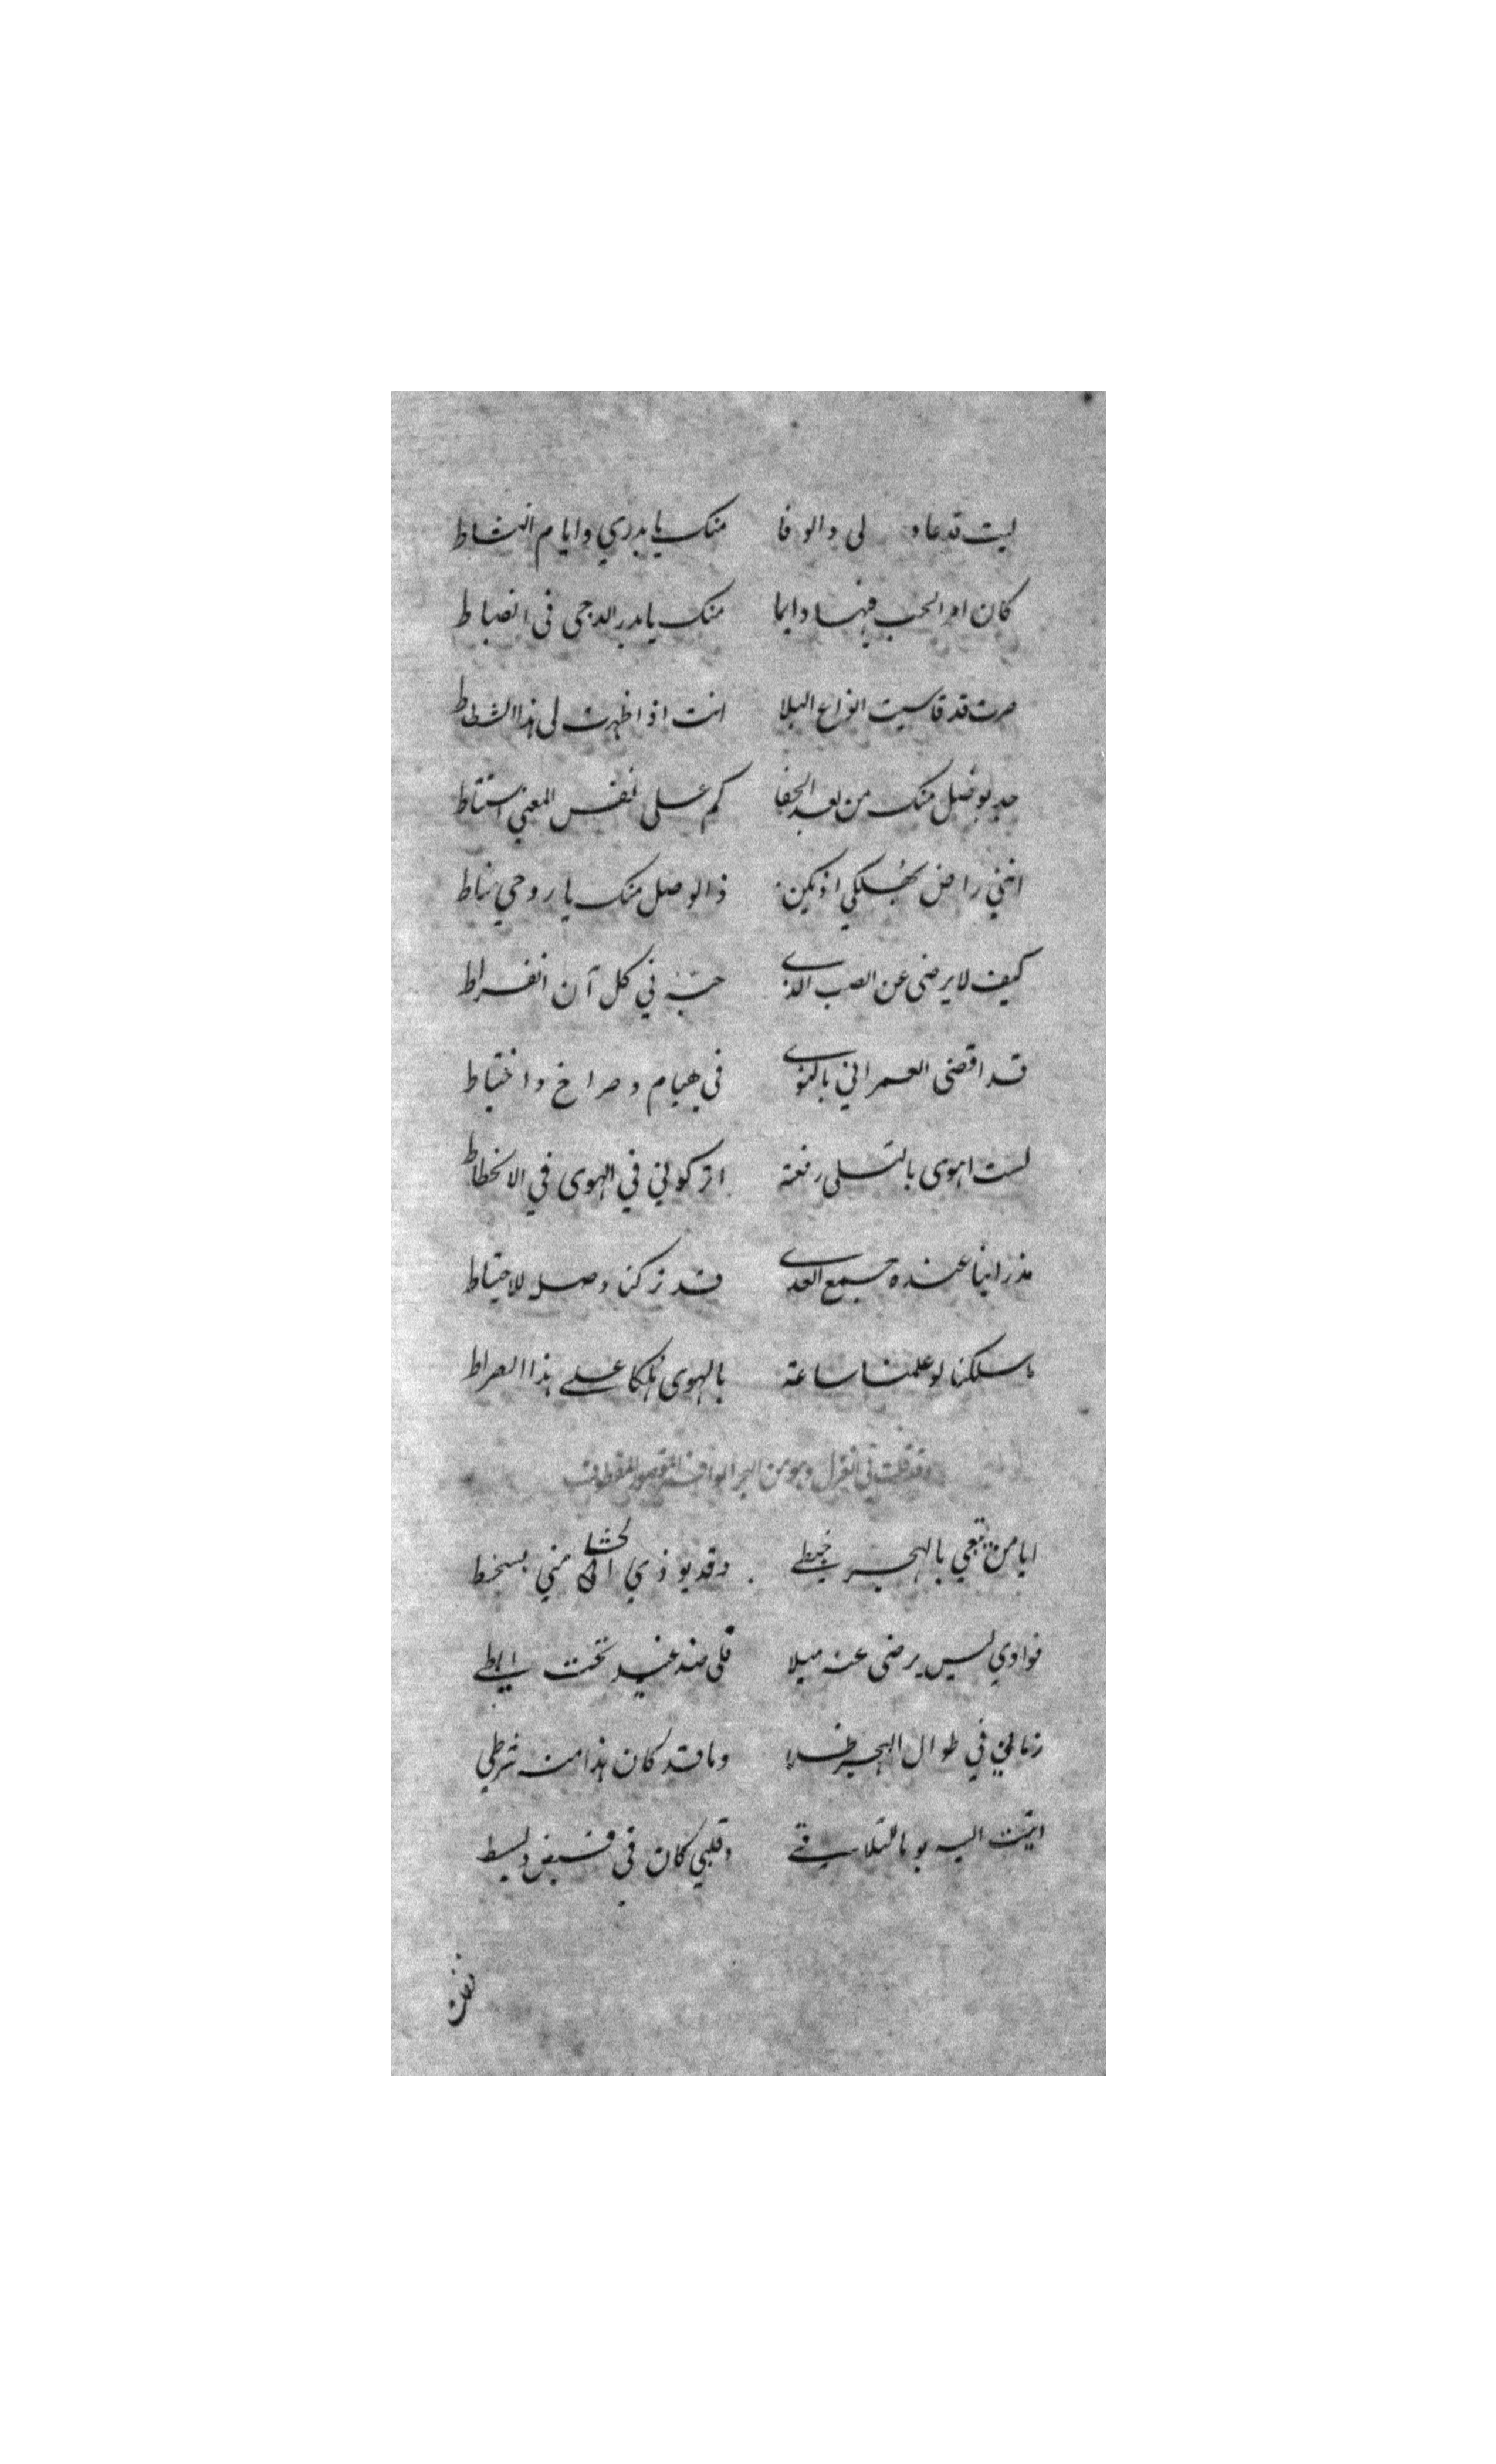 ليت قد عاد لي والوفا منك يا بدري وايام النشاط
كان امر الحب فيها دايما منك يا بدر الدجى في انضباط
صرت قد قاسيت انواع البلا انت اذ اظهرت لي هذا الشطاط
جد بوصل منك من بعد الجفا كم على نفس المعنى استتاط
انني راض بهلكي اذ يكن ذا الوصل منك يا روحي يناط
كيف لا يرضى عن الصب الذي حبه في كل آن انفراط
قد اقضى العمر اني بالنوى في هيام وصراخ واختباط
لست اهوى بالتسلي رفعة اتركوني في الهوى في الانحطاط
مذ راينا عنده جميع العدى قد تركنا وصل للاحتياط
ما سلكنا لو علمنا ساعة بالهوى هلكا على هذا الصراط
وقد قلت في الغزل وهو من البحر الوافر المقصور المقطوف
ايا من يبتغي بالهجر خبطي وقد يوذي الحشا مني بسخط
فوادي ليس يرضى عنه ميلا فلي ضد غير تحت ابطي
زماني في طوال الهجر ظلما وما قد كان هذا منه شرطي
اتيت اليه يوما للتلاقي وقلبي كان في قبض وبسط